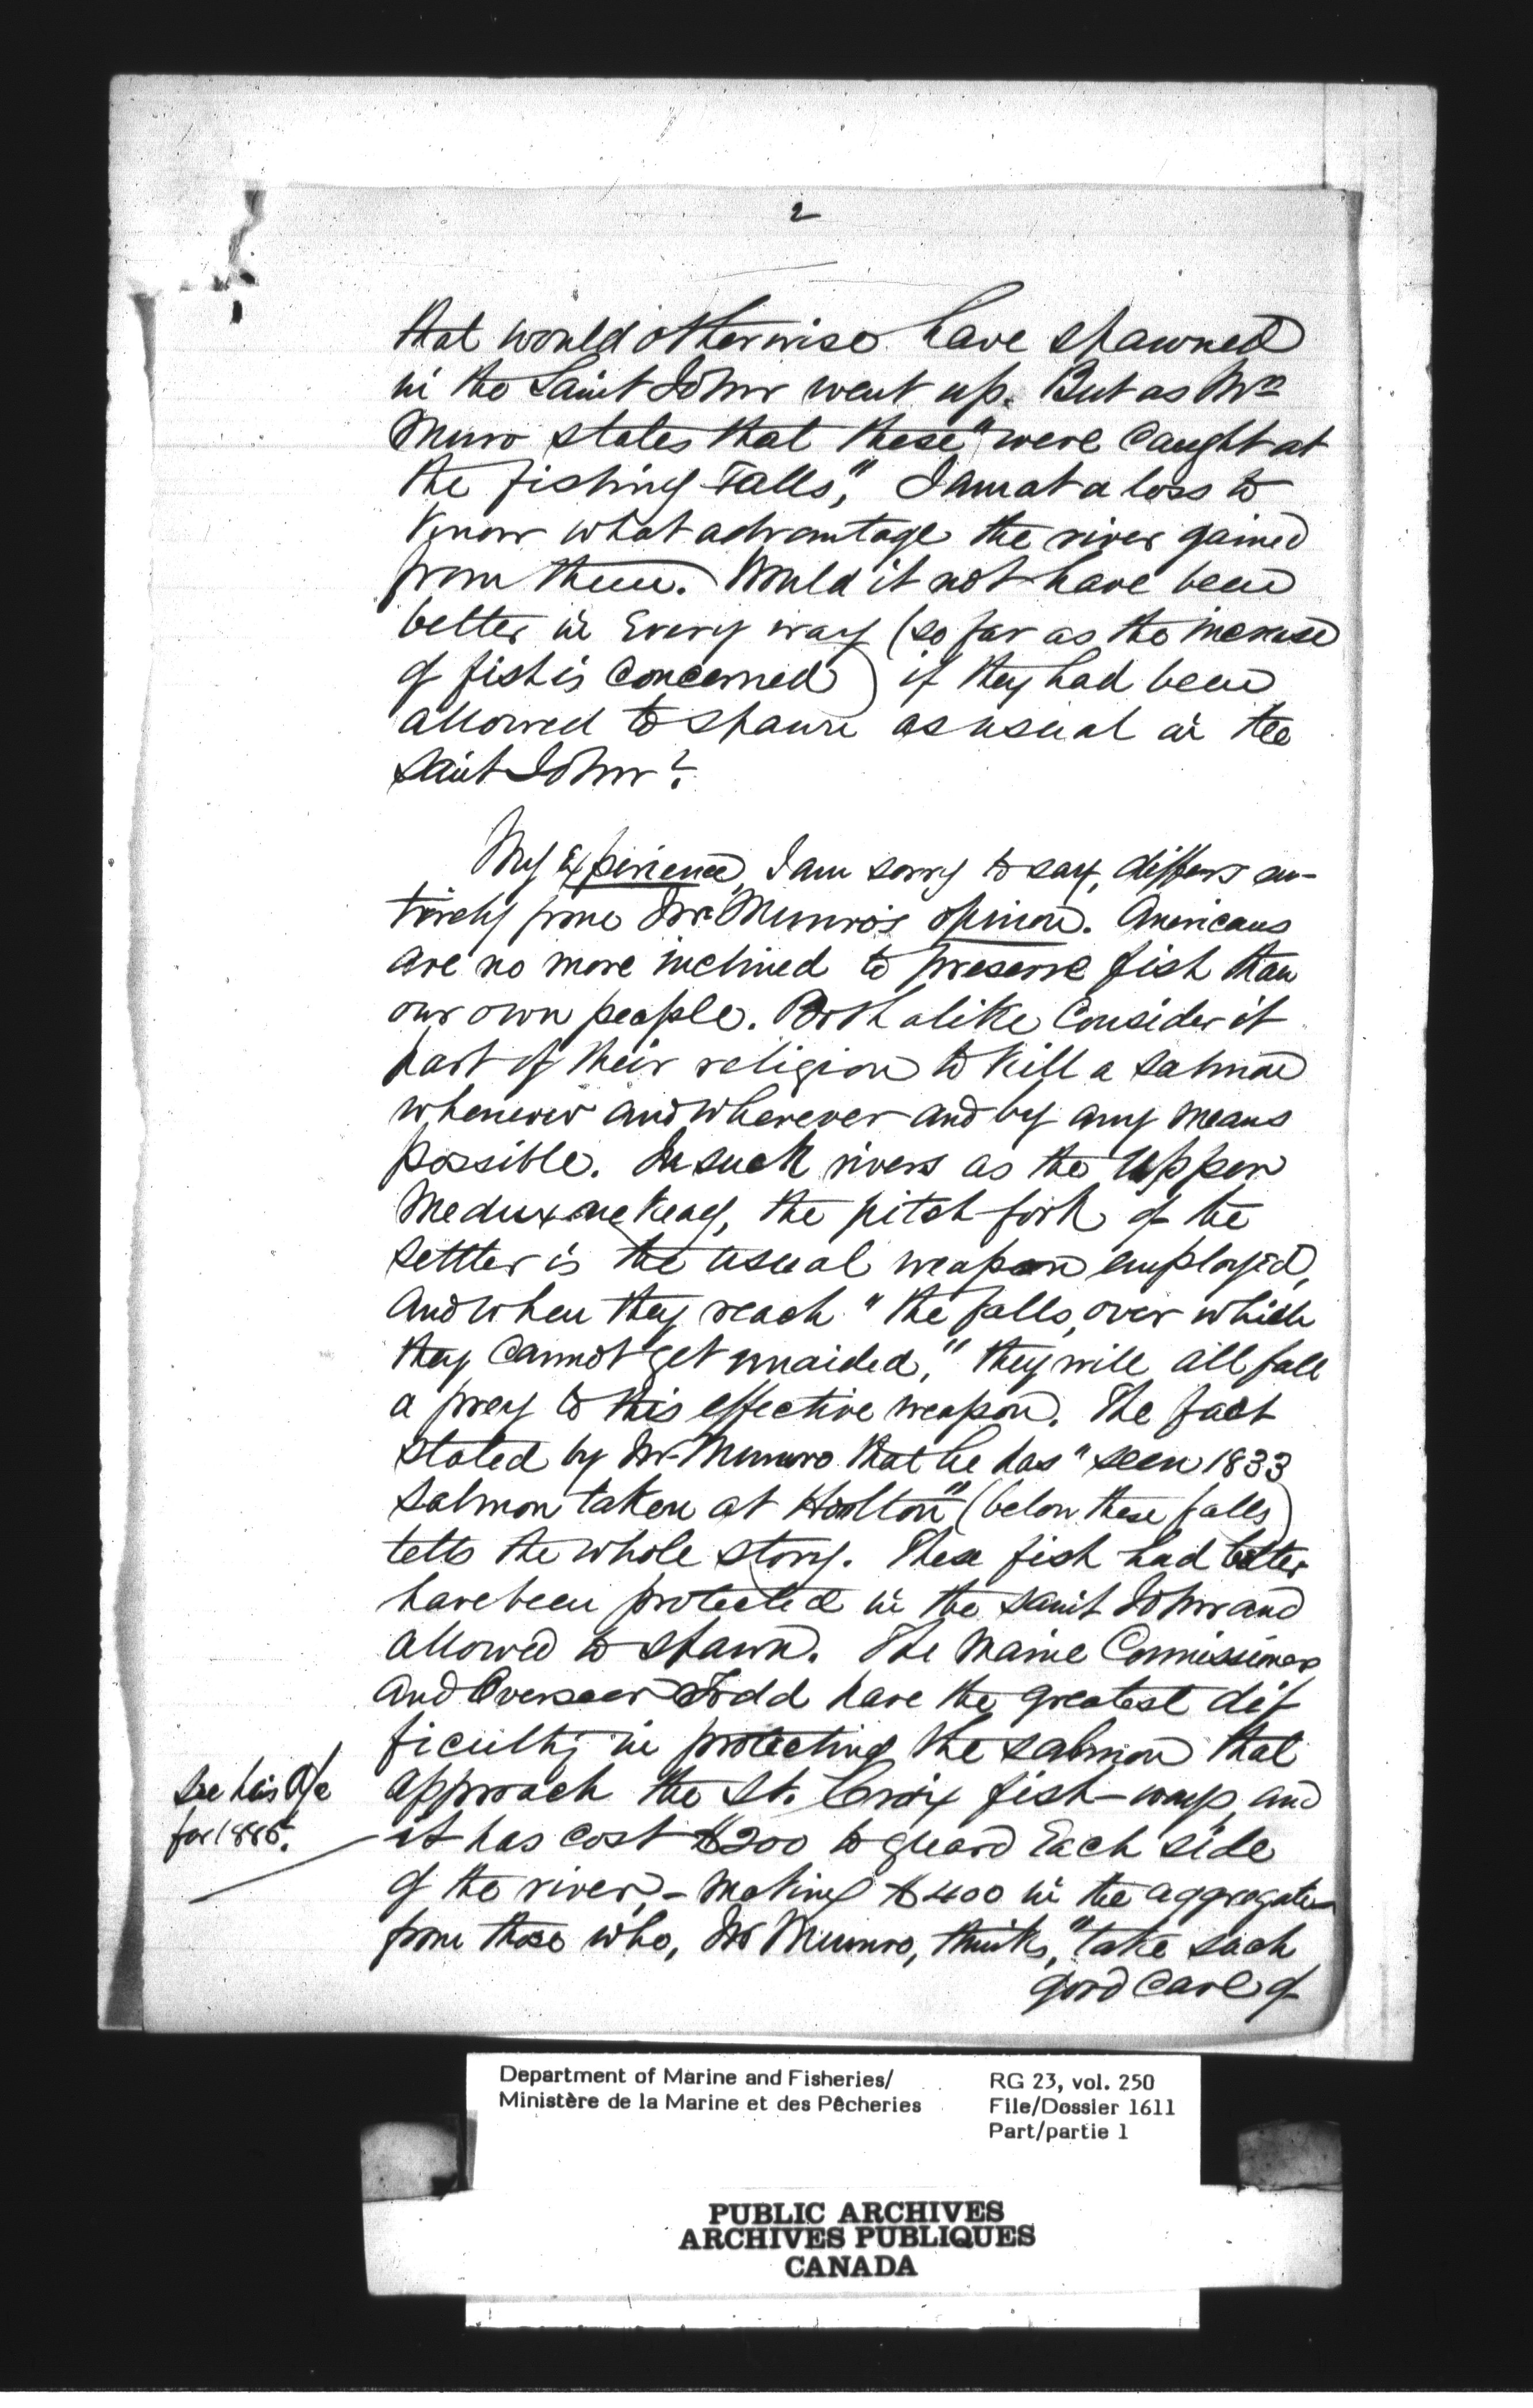 2
that would otherwise have spawned
in the Saint John went up. But as Mr
Munro states that these "were caught at
the fishing Falls," I am at a loss to
know what advantage the river gained
from them. Would it not have been
better in Every way (so far as the increase
of fish is concerned) if they had been
allowed to spawn as usual in the
Saint John?
My Experience, I am sorry to say, differs en-
tirely from Mr Munro's opinion. Americans
are no more inclined to preserve fish than
our own people. Both alike Consider it
part of their religion to kill a salmon
whenever and wherever and by any means
possible. In such rivers as the Upper
Meduxnekeag, the pitch fork of the
settler is the usual weapon employed,
and when they reach "the falls, over which
they cannot get unaided," they will all fall
a prey to this effective weapon. The fact
stated by Mr Munro that he has "seen 1833
salmon taken at Hoolton" (below these falls)
tells the whole story. These fish had better
have been protected in the Saint John and
allowed to spawn. The Maine Commissioners
and Overseer Todd have the greatest dif
ficulty in protecting the salmon that
approach the St. Croix fish-ways and
see his a/c
for 1885.
it has cost $200 to guard Each side
of the river, - making $400 in the aggregate
from those who, Mr Munro, thinks, "take such
good care of
Department of Marine and Fisheries/
Ministère de la Marine et des Pêcheries
RG 23, vol. 250
File/Dossier 1611
Part/partie 1
PUBLIC ARCHIVES
ARCHIVES PUBLIQUES
CANADA